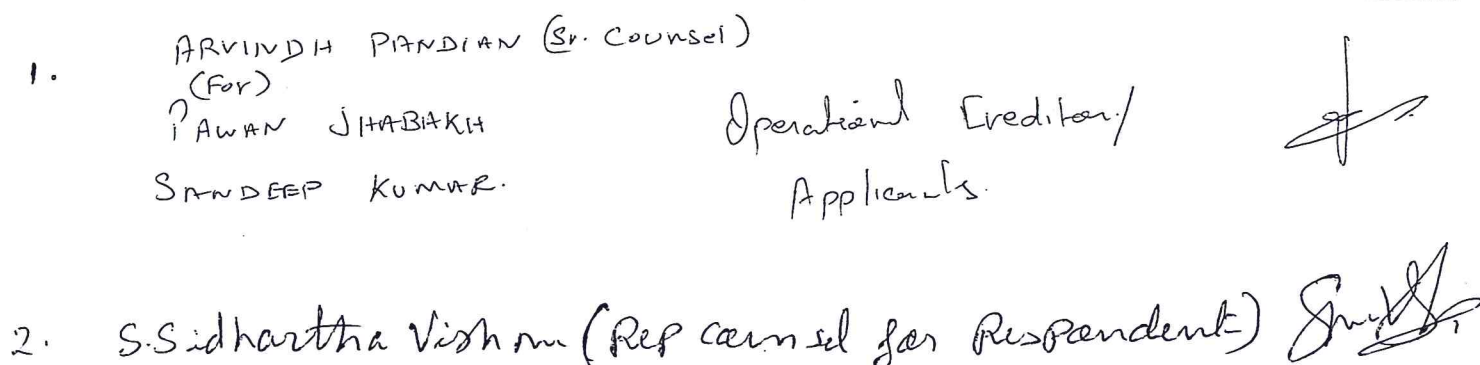 1. ARVINDH PANDIAN (Sr. Counsel)
(For)
PAWAN JHABAKH
Operational Creditor/
SANDEEP KUMAR.
Applicants.
2. S.Sidhartha Vishnu (Rep counsel for Respondent)